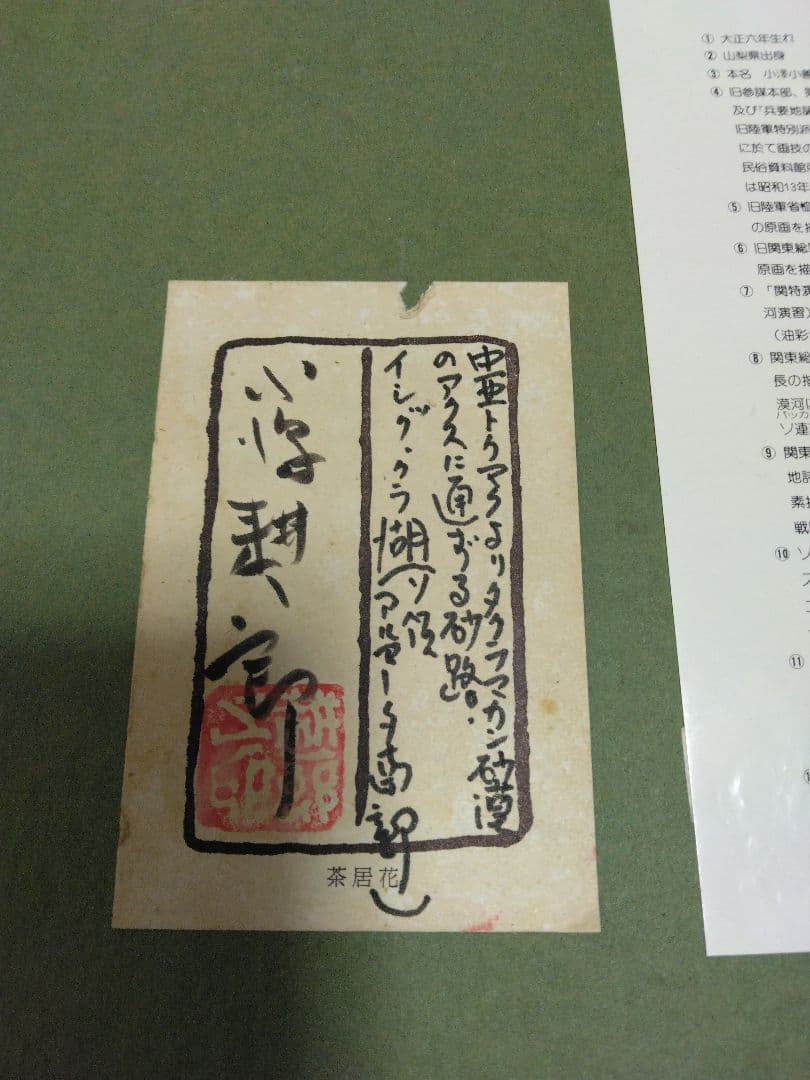 中亜トクマクよりタクラマカン砂漠
のアクスに通ずる砂路。
イシク、クラ湖(ソ領
アルマータ南部)
小澤耕一郎
花居茶
① 大正六年生れ
② 山梨県出身
③ 本名 小澤小
④ 旧参謀本部、
及び「兵要地
旧陸軍特別派
に於て画技の
民俗資料館
は昭和13年
⑤ 旧陸軍省
の原画を
⑥ 旧関東総
原画を描
⑦ 「関特演
河演習)
(油彩
⑧ 関東総
長の描
漠河
ソ連
⑨ 関東
地誌
素描
戦
⑩ ソ
⑪